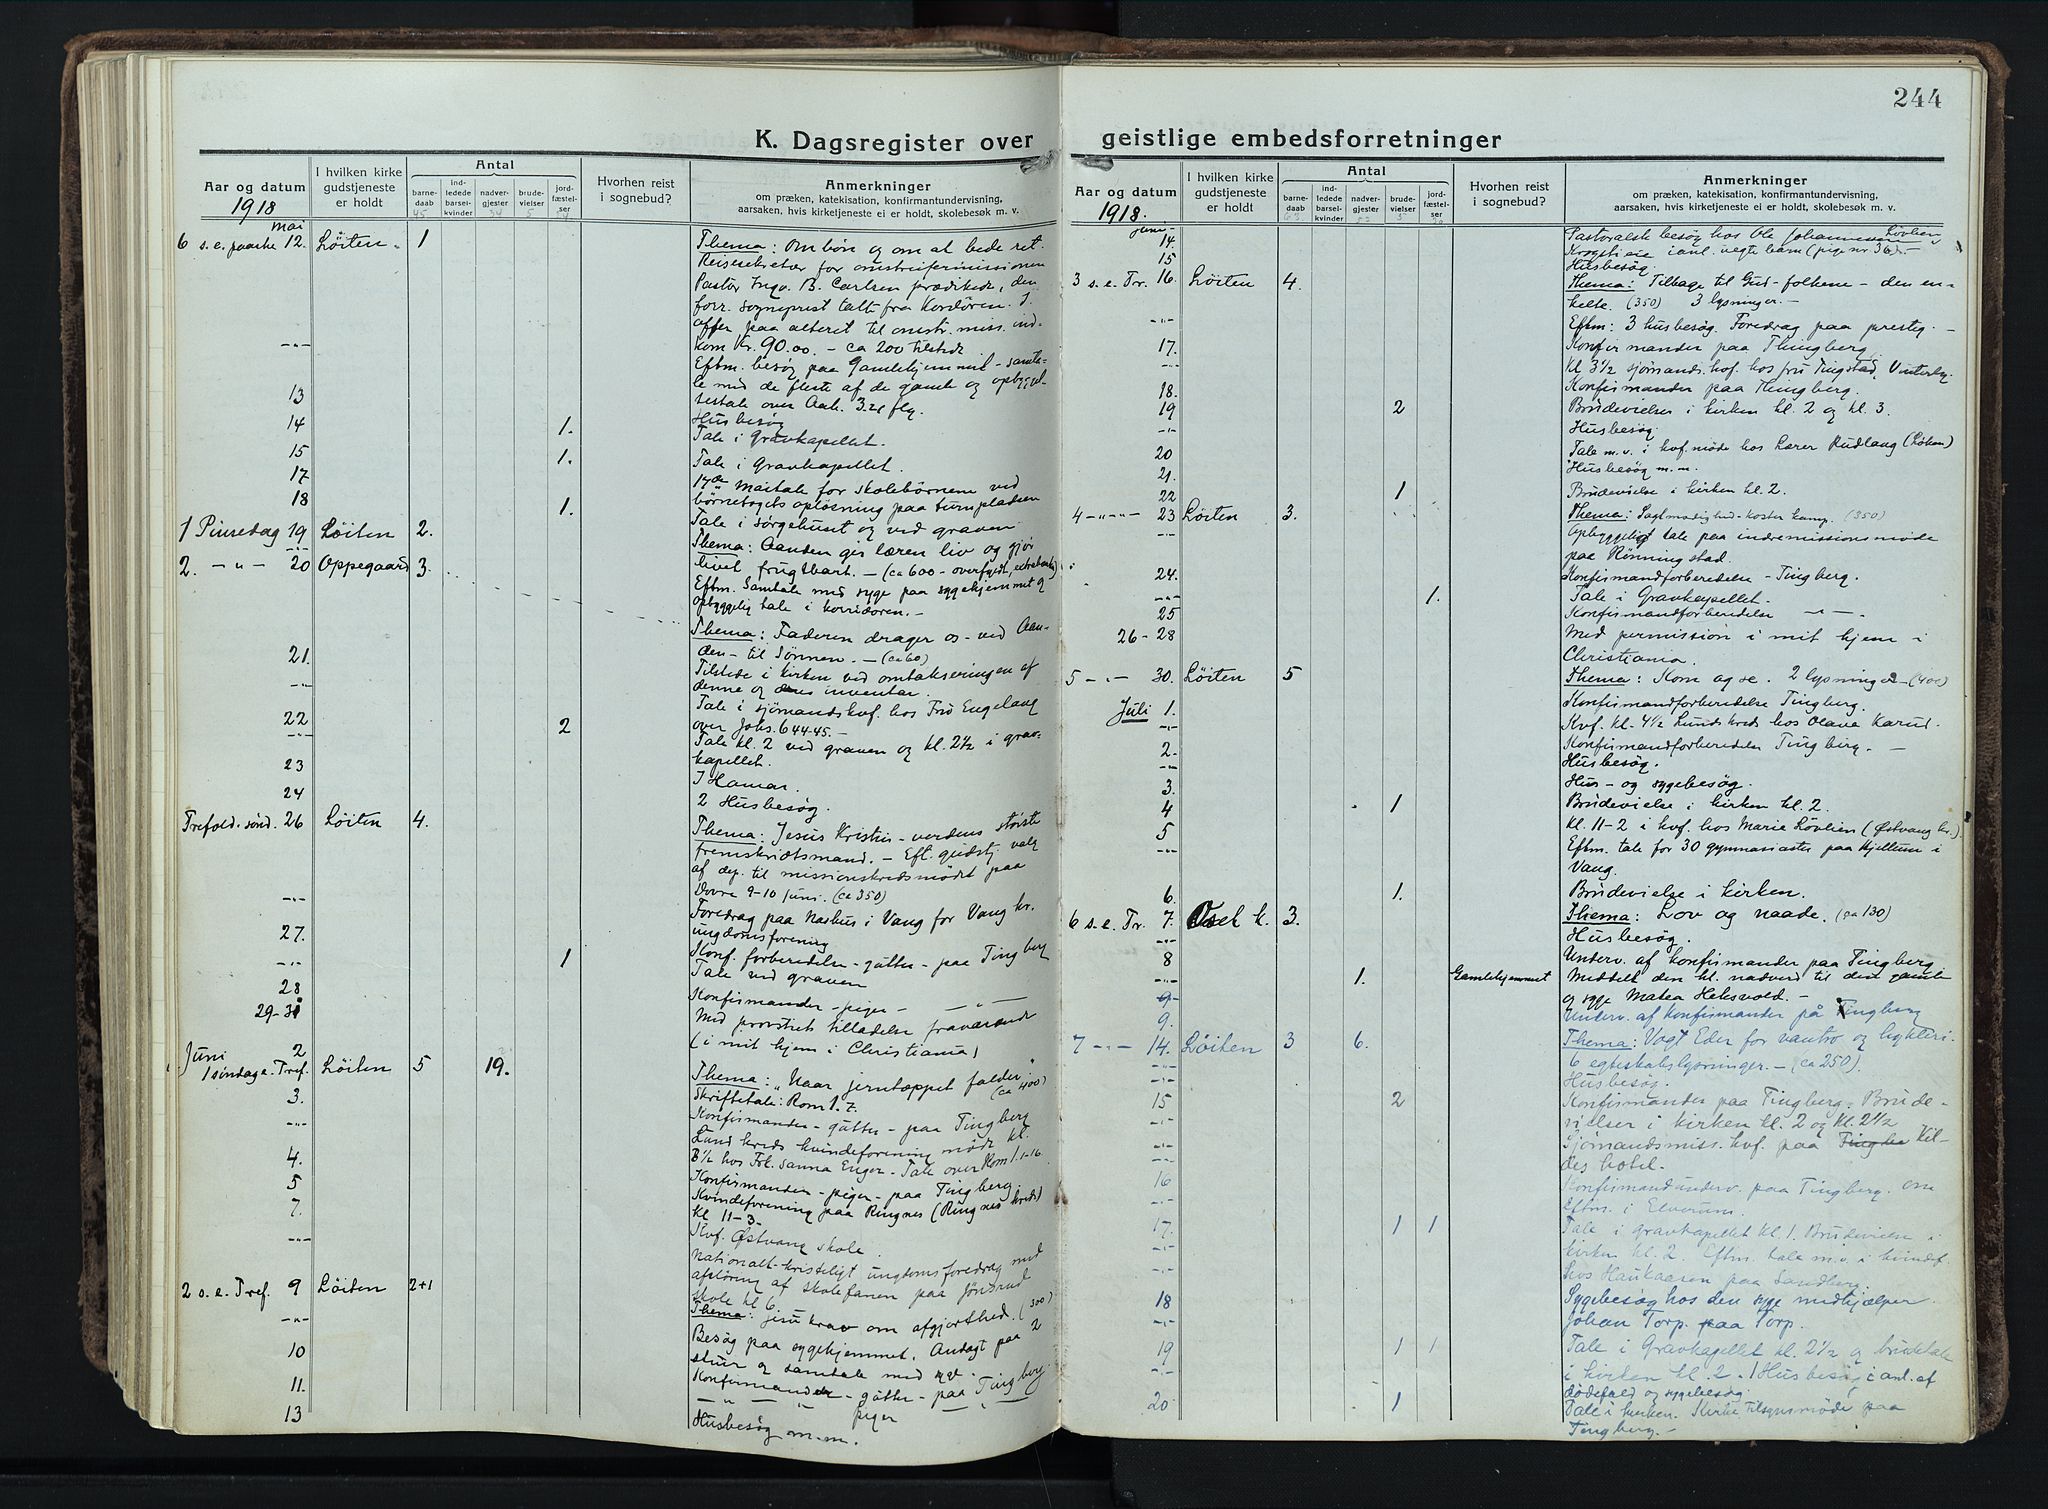 244
K. Dagsregister over
geistlige embedsforretninger
Aar og datum
1918
I hvilken kirke
gudstjeneste
er holdt
Antal
barne-
daab
ind-
ledede
barsel-
kvinder
nadver-
gjester
brude-
vielser
jord-
fæstel-
ser
Hvorhen reist
i sognebud?
Anmerkninger
om præken, katekisation, konfirmantundervisning,
aarsaken, hvis kirketjeneste ei er holdt, skolebesøk m. v.
mai
6 s.e. paaske 12. Løiten 1
Thema: Om bøn og om at bede ret.
Reisesekretær for omstreifermissionen
Pastor Ingv. B. Carlsen prædikede, den
forr. sogneprest talte fra Kordøren. I
offer paa alteret til omstr. miss. ind-
kom Kr. 90.00. - ca 200 tilstede
Eftm. besøg paa Gamlehjemmet - samta-
le med de fleste af de gamle og opbyggel-
sestale over Aab. 3.21 flg.
13
Husbesøg
14 1.
Tale i Gravkapellet.
15 1.
Tale i Gravkapellet.
17
17de Maitale for skolebørnene ved
børnetogets opløsning paa turnpladsen
18 1.
Tale i sørgehuset og ved graven
1 Pinsedag 19 Løiten 2.
Thema: Aanden gir læren liv og gjør
livet frugtbart. - (ca 600 - overfyldt, extrabænke)
Eftm. Samtale med syge paa sygehjemmet og
opbyggelig tale i korridoren. -
2. - " - 20 Oppegaard 3.
Thema: Faderen drager os - ved Aan-
den - til Sønnen. - (ca 60)
21.
Tilstede i kirken ved omtakseringen af
denne og dens inventar.
Tale i sjømandskvf. hos Fru Engelaug
over Joh. 6 44-45. -
22 2
Tale kl. 2 ved graven og kl. 2½ i grav-
kapellet.
23
I Hamar.
24
2 Husbesøg.
Trefold. sønd. 26 Løiten 4.
Thema: Jesus Kristus - verdens største
fremskridtsmand. - Eft. gudstj. valg
af dep. til missionskredsmødet paa
Dovre 9-10 juni. (ca 350)
Foredrag paa Narhus i Vang for Vang kr.
ungdomsforening
27.
Konf. forberedelse - gutter - paa Tingberg
1
Tale ved graven
28
Konfirmander - piger - - " -
29-31
Med provstiets tilladelse fraværende
(i mit hjem i Christiania)
Juni 2
1 søndag e. Tref. Løiten 5 19.
Thema: "Naar jerntæppet falder" (ca 400)
Skriftetale: Rom 1.7.
3.
Konfirmander - gutter - paa Tingberg
Lund kreds kvindeforening møde kl.
3½ hos Frk. Sanna Enger - Tale over Rom 1.1-16.
4.
Konfirmander - piger - paa Tingberg.
5
Kvindeforening paa Ringnes (Ringnes kreds)
kl 11-3.
7.
Kvf. Østvang skole.
Nationalt-kristeligt ungdomsforedrag med
afsløring af skolefanen paa Jønsrud
skole kl 6.
2 s.e. Tref. 9 Løiten 2+1
Thema: Jesu krav om afgjorthed. (300)
Besøg paa sygehjemmet. Andagt paa 2
stuer og samtale med syge.
10
Konfirmander - gutter - paa Tingberg
11.
- " - " piger - " -
13
Husbesøg m.m.
Aar og datum
1918.
I hvilken kirke
gudstjeneste
er holdt
Antal
barne-
daab
ind-
ledede
barsel-
kvinder
nadver-
gjester
brude-
vielser
jord-
fæstel-
ser
Hvorhen reist
i sognebud?
Anmerkninger
om præken, katekisation, konfirmantundervisning,
aarsaken, hvis kirketjeneste ei er holdt, skolebesøk m. v.
Juni
14.
Pastoralsk besøg hos Ole Johannessen Løvlien
Krogstieie i anl. uegte barn (pige nr. 36). -
15
Husbesøg
3 s.e. Tr. 16. Løiten 4.
Thema: Tilbage til Gud - folkene - den en-
kelte. (350) 3 lysninger. -
Eftm: 3 husbesøg. Foredrag paa prestg. -
17.
Konfirmander paa Thingberg
Kl 3½ sjømands. kvf. hos fru Tingstad, Vinterby.
18.
Konfirmander paa Thingberg.
19 2
Brudevielser i kirken kl. 2 og kl. 3.
Husbesøg.
20
Tale m.v. i kvf. møde hos Lærer Rudlang (Løken)
21.
Husbesøg m.m.
22 1
Brudevielse i kirken kl. 2.
4 - " - " - 23 Løiten 3.
Thema: Sagtmodighed - koster kamp. (350)
Opbyggeligt tale paa indremissionsmøde
paa Rønningstad.
24.
Konfirmandforberedelse - Tingberg.
1.
Tale i Gravkapellet.
25
Konfirmandforberedelse - " -.
26-28
Med permission i mit hjem i
Christiania.
5 - " - 30. Løiten 5
Thema: Kom og se. 2 lysninger - (400)
Juli 1.
Konfirmandforberedelse Tingberg.
Kvf. kl. 4½ Lunds kreds hos Olava Karud.
2.
Konfirmandforberedelse Tingberg. -
Husbesøg.
3.
Hus - og sygebesøg.
4 1
Brudevielse i kirken kl. 2.
5
Kl. 11-2 i kvf. hos Marie Løvlien (Østvang kr.)
Eftm. tale for 30 gymnasiaster paa Hjellum i
Vang.
6. 1.
Brudevielse i kirken.
6 s.e. Tr. 7. Oset k. 3.
Thema: Lov og naade. (ca 130)
Husbesøg.
8
Underv. af konfirmander paa Tingberg
1. Gamlehjemmet
Meddelt den hl. nadverd til den gamle
og syge Matea Heksvold. -
9.
Underv. af konfirmander på Tingberg
7 - " - 14. Løiten 3 6.
Thema: Vogt Eder for vantro og hykleri.
6 egteskabslysninger. - (ca 250).
Husbesøg.
15 2
Konfirmander paa Tingberg. Brude-
vielser i kirken kl. 2 og kl. 2½
Sjømandsmiss. kvf. paa Tingbe Kil-
des hotel.
16
Konfirmandunderv. paa Tingberg. om
Eftm. i Elverum.
17. 1 1
Tale i gravkapellet kl. 1. Brudevielse i
kirken kl. 2. Eftm. tale m.v. i kvindf.
hos Haukaasen paa Sandberg.
18
Sygebesøg hos den syge medhjælper
Johan Torp. paa Torp.
19 1 1
Tale i Gravkapellet kl. 2½ og brudetale
i kirken kl. 2. 1 Husbesøg i anl. af
dødsfald og sygebesøg.
20 1
Tale i kirken. Kirketilsynsmøde paa
Tingberg. -